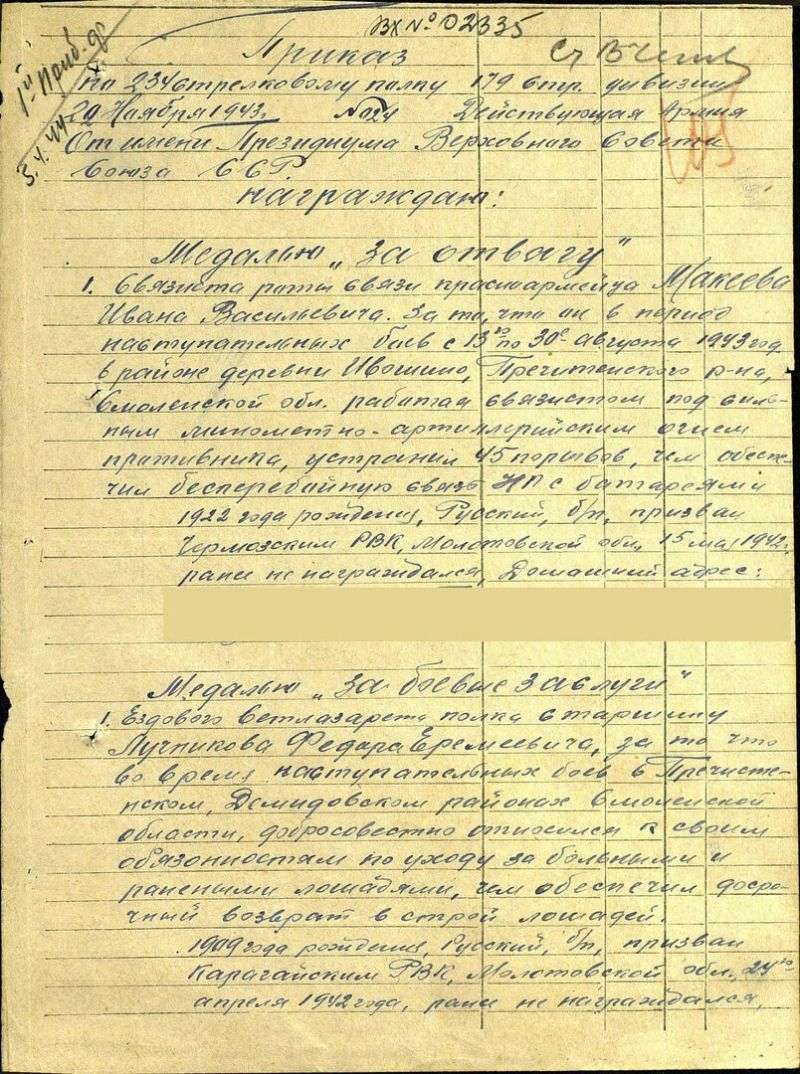 Вх № 02335
1й Приб. фр
5.4.44
Приказ
по 234 стрелковому полку 179 стр. дивизии
29 Ноября 1943г. №024 Действующая Армия
От имени Президиума Верховного Совета
Союза ССР.
награждаю:
Медалью „За отвагу"
1. Связиста роты связи красноармейца Макеева
Ивана Васильевича. За то, что он в период
наступательных боев с 13го по 30е августа 1943 год.
в районе деревни Ивошино, Пречитенского р-на,
Смоленской обл. работая связистом под силь-
ным минометно-артиллерийским огнем
противника, устранил 45 порывов, чем обеспе-
чил бесперебойную связь НП с батареями
1922 года рождения, Русский, б/п, призван
Чермозским РВК, Молотовской обл, 15 мая 1942г,
ранее не награждался, Домашний адрес:
Медалью „За боевые заслуги"
1. Ездового Ветлазарета полка старшину
Лучникова Федора Еремеевича, за то что
во время наступательных боев в Пречисте-
нском, Демидовском районах Смоленской
области, добросовестно относился к своим
обязонностям по уходу за больными и
ранеными лошадями, чем обеспечил досро-
чный возврат в строй лошадей.
1909 года рождения, Русский, б/п, призван
Карагайским РВК, Молотовской обл., 24го
апреля 1942 года, ранее не награждался,